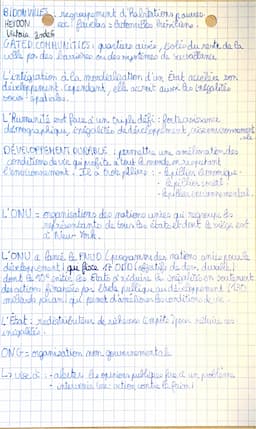 BIDONVILLES : regroupement d'habitations pauvres
HEIDON ex : favelas : bidonvilles brésiliens.
GATED COMMUNITIES : quartiers aisés, isolés du reste de la
ville par des barrières ou des systèmes de surveillance
L'intégration à la mondialisation d'un État accélère son
développement. Cependant, elle accroit aussi les inégalités
socio-spatiales.
L'Humanité doit faire à un triple défi : forte croissance
démographique, inégalités de développement, environnement
DÉVELOPPEMENT DURABLE : permettre une amélioration des
conditions de vie qui profite à tout le monde en respectant
l'environnement. Il a trois piliers : - le pilier économique
- le pilier social
- le pilier environnemental.
L'ONU = organisations des nations unies qui regroupe les
représentants de tous les états et dont le siège est
à New-York.
L'ONU a lancé le PNUD (programme des nations unies pour le
développement) que fixe 17 ODD (objectifs de dev. durable)
dont le 10e incite les États à réduire les inégalités en soutenant
des actions financées par l'aide publique au développement (APD)
qui permet d'améliorer les conditions de vie.
L'État : redistributeur de richesse (impôts) pour réduire les
inégalités.
ONG = organisation non gouvernementale
↳ vise à : - alerter les opinions publiques face à un problème
- intervenir (ex : action contre la faim)